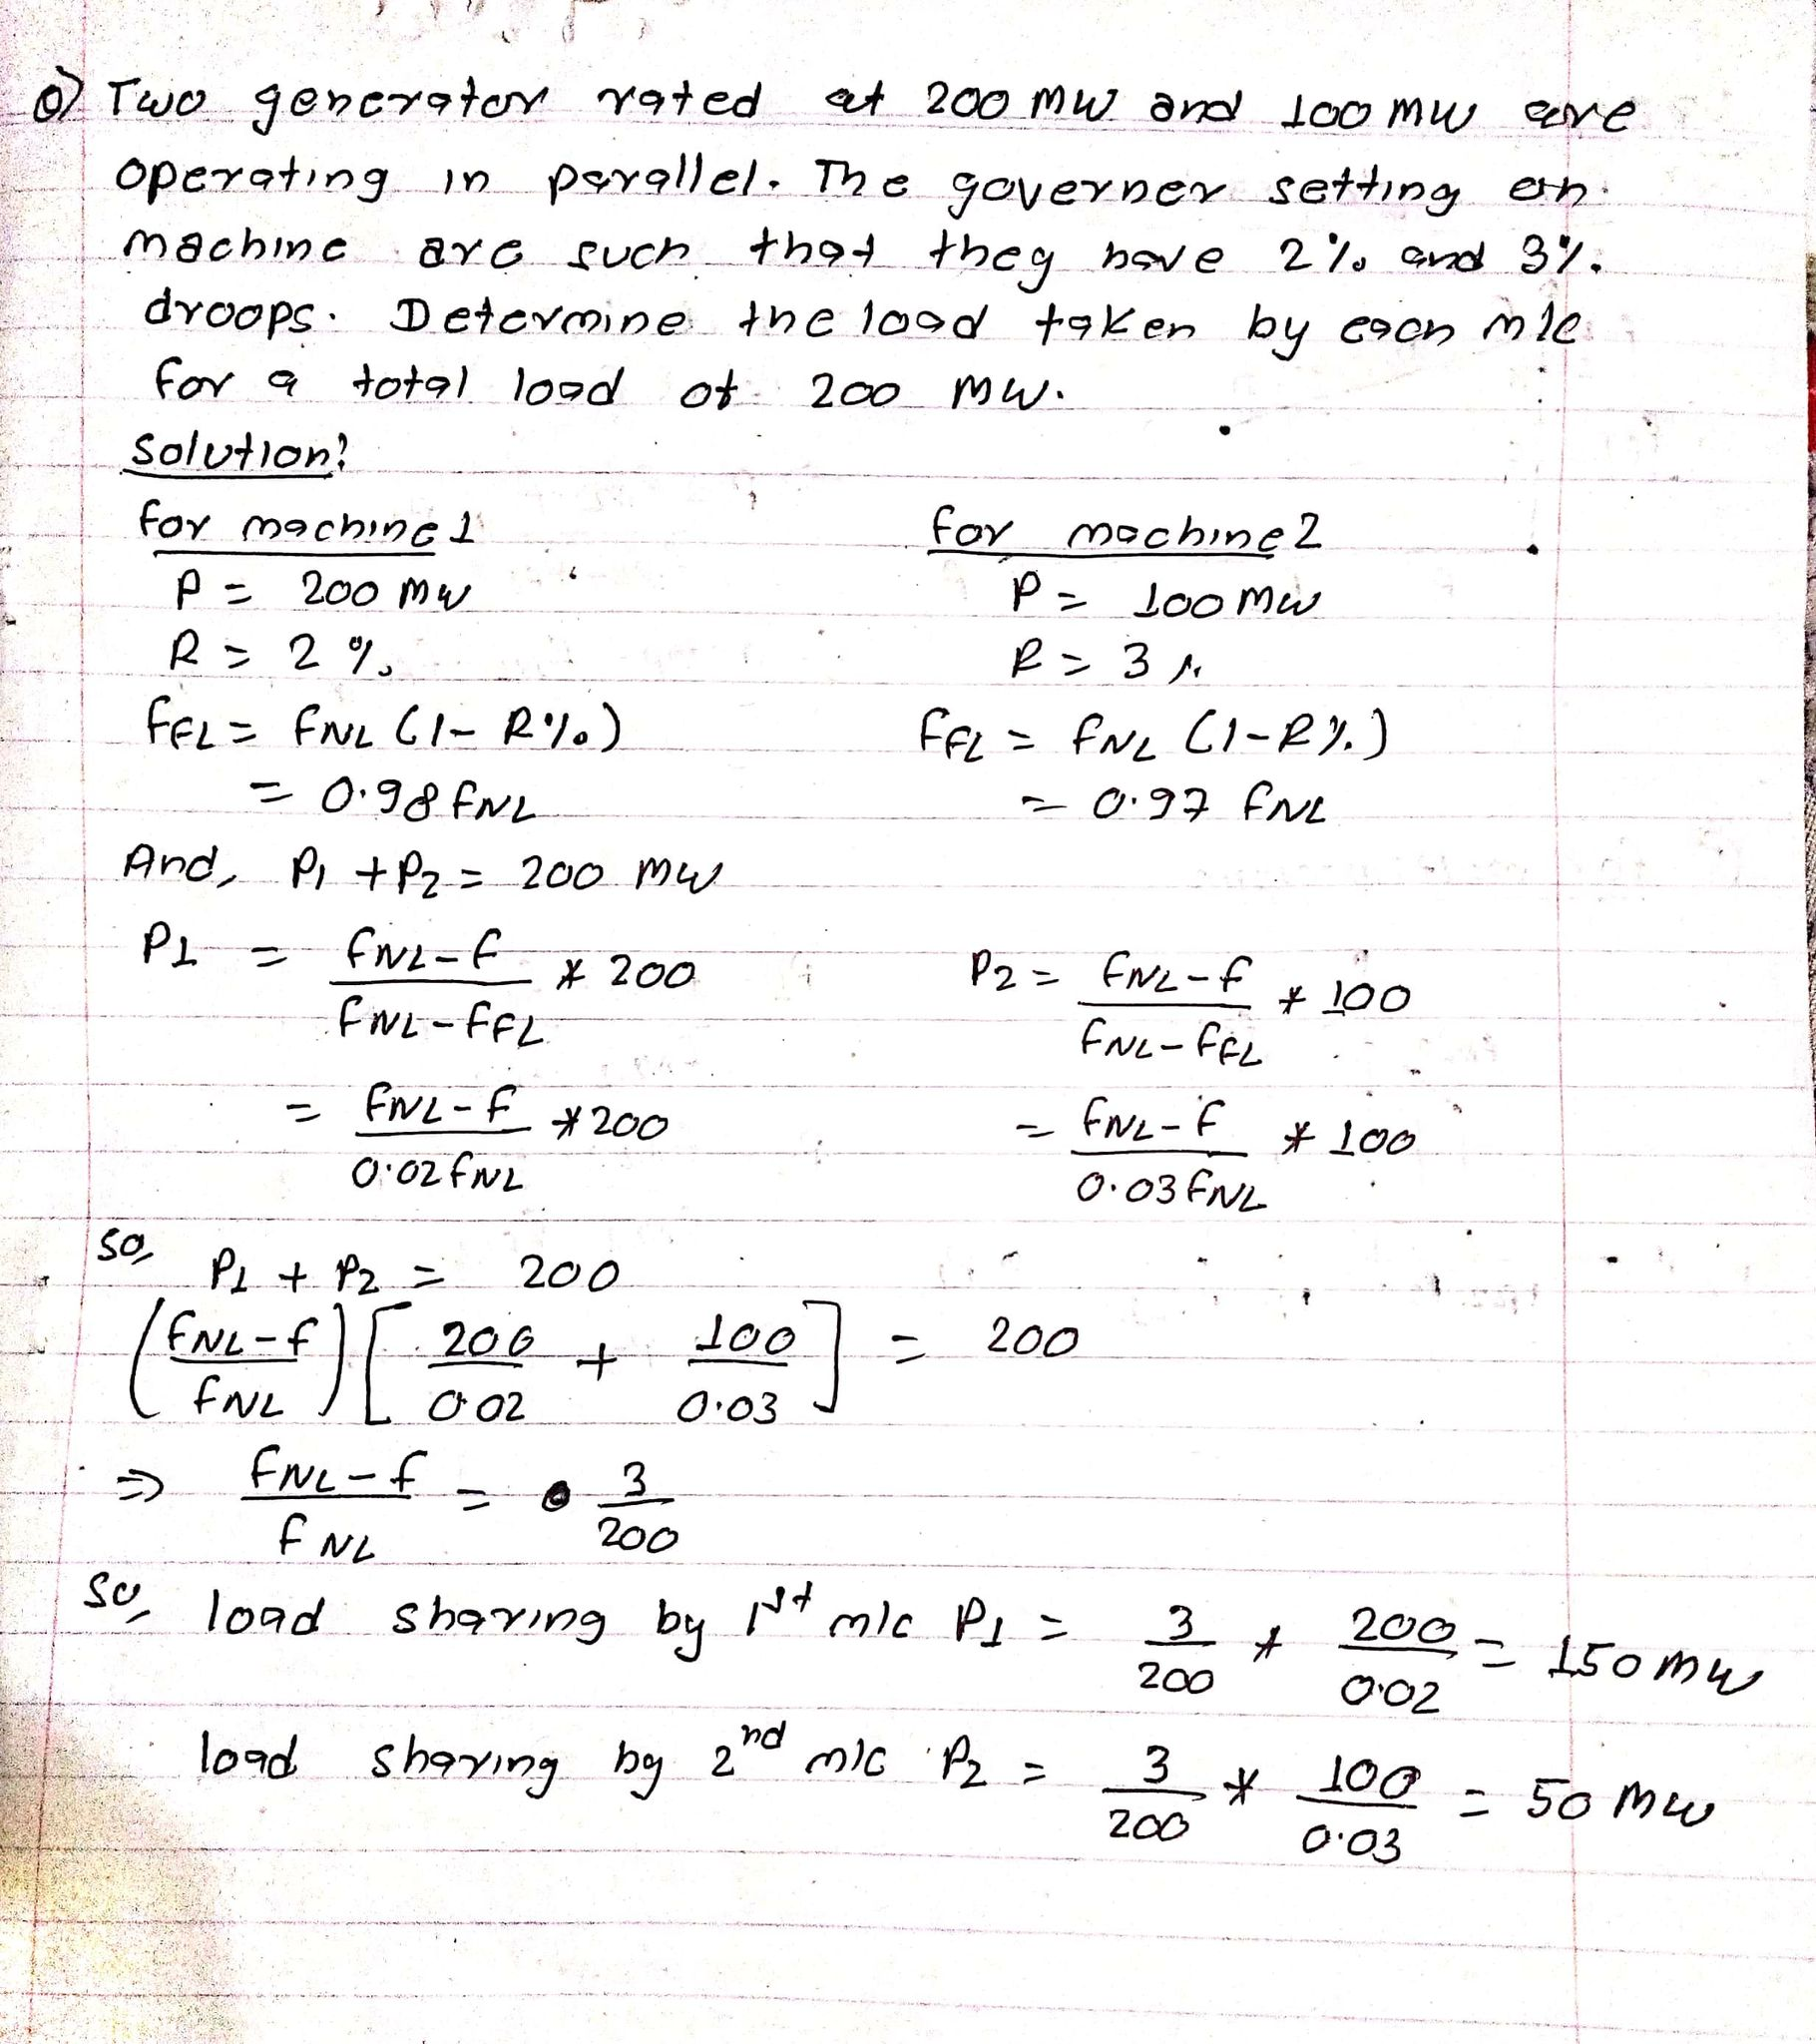 Q) Two generator rated at 200 MW and 100 MW are
operating in parallel. The governer setting on
machine are such that they have 2% and 3%
droops. Determine the load taken by each m/c
for a total load of 200 MW.
Solution:
for machine 1
for machine 2
P = 200 MW
P = 100 MW
R = 2 %
R = 3 %
fFL = fNL (1- R%)
fFL = fNL (1-R%)
= 0.98 fNL
= 0.97 fNL
And, P1 + P2 = 200 MW
P1 = fNL-f / fNL-fFL * 200
P2 = fNL-f / fNL-fFL * 100
= fNL-f / 0.02 fNL * 200
= fNL-f / 0.03 fNL * 100
so, P1 + P2 = 200
(fNL-f / fNL) [200 / 0.02 + 100 / 0.03] = 200
⇒ fNL-f / fNL = 3 / 200
so, load sharing by 1st m/c P1 = 3/200 * 200/0.02 = 150 MW
load sharing by 2nd m/c P2 = 3/200 * 100/0.03 = 50 MW